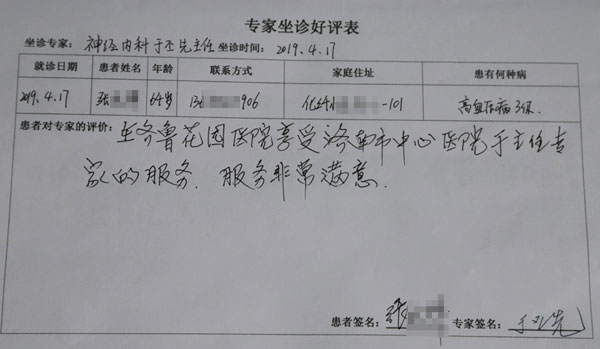 专家坐诊好评表
坐诊专家：神经内科于丕先主任 坐诊时间：2019.4.17
就诊日期 患者姓名 年龄 联系方式 家庭住址 患有何种病
2019.4.17 张 64岁 13 906 化纤 -101 高血压病3级.
患者对专家的评价：在齐鲁花园医院享受济南市中心医院于主任专
家的服务. 服务非常满意.
患者签名：张 专家签名：于丕先